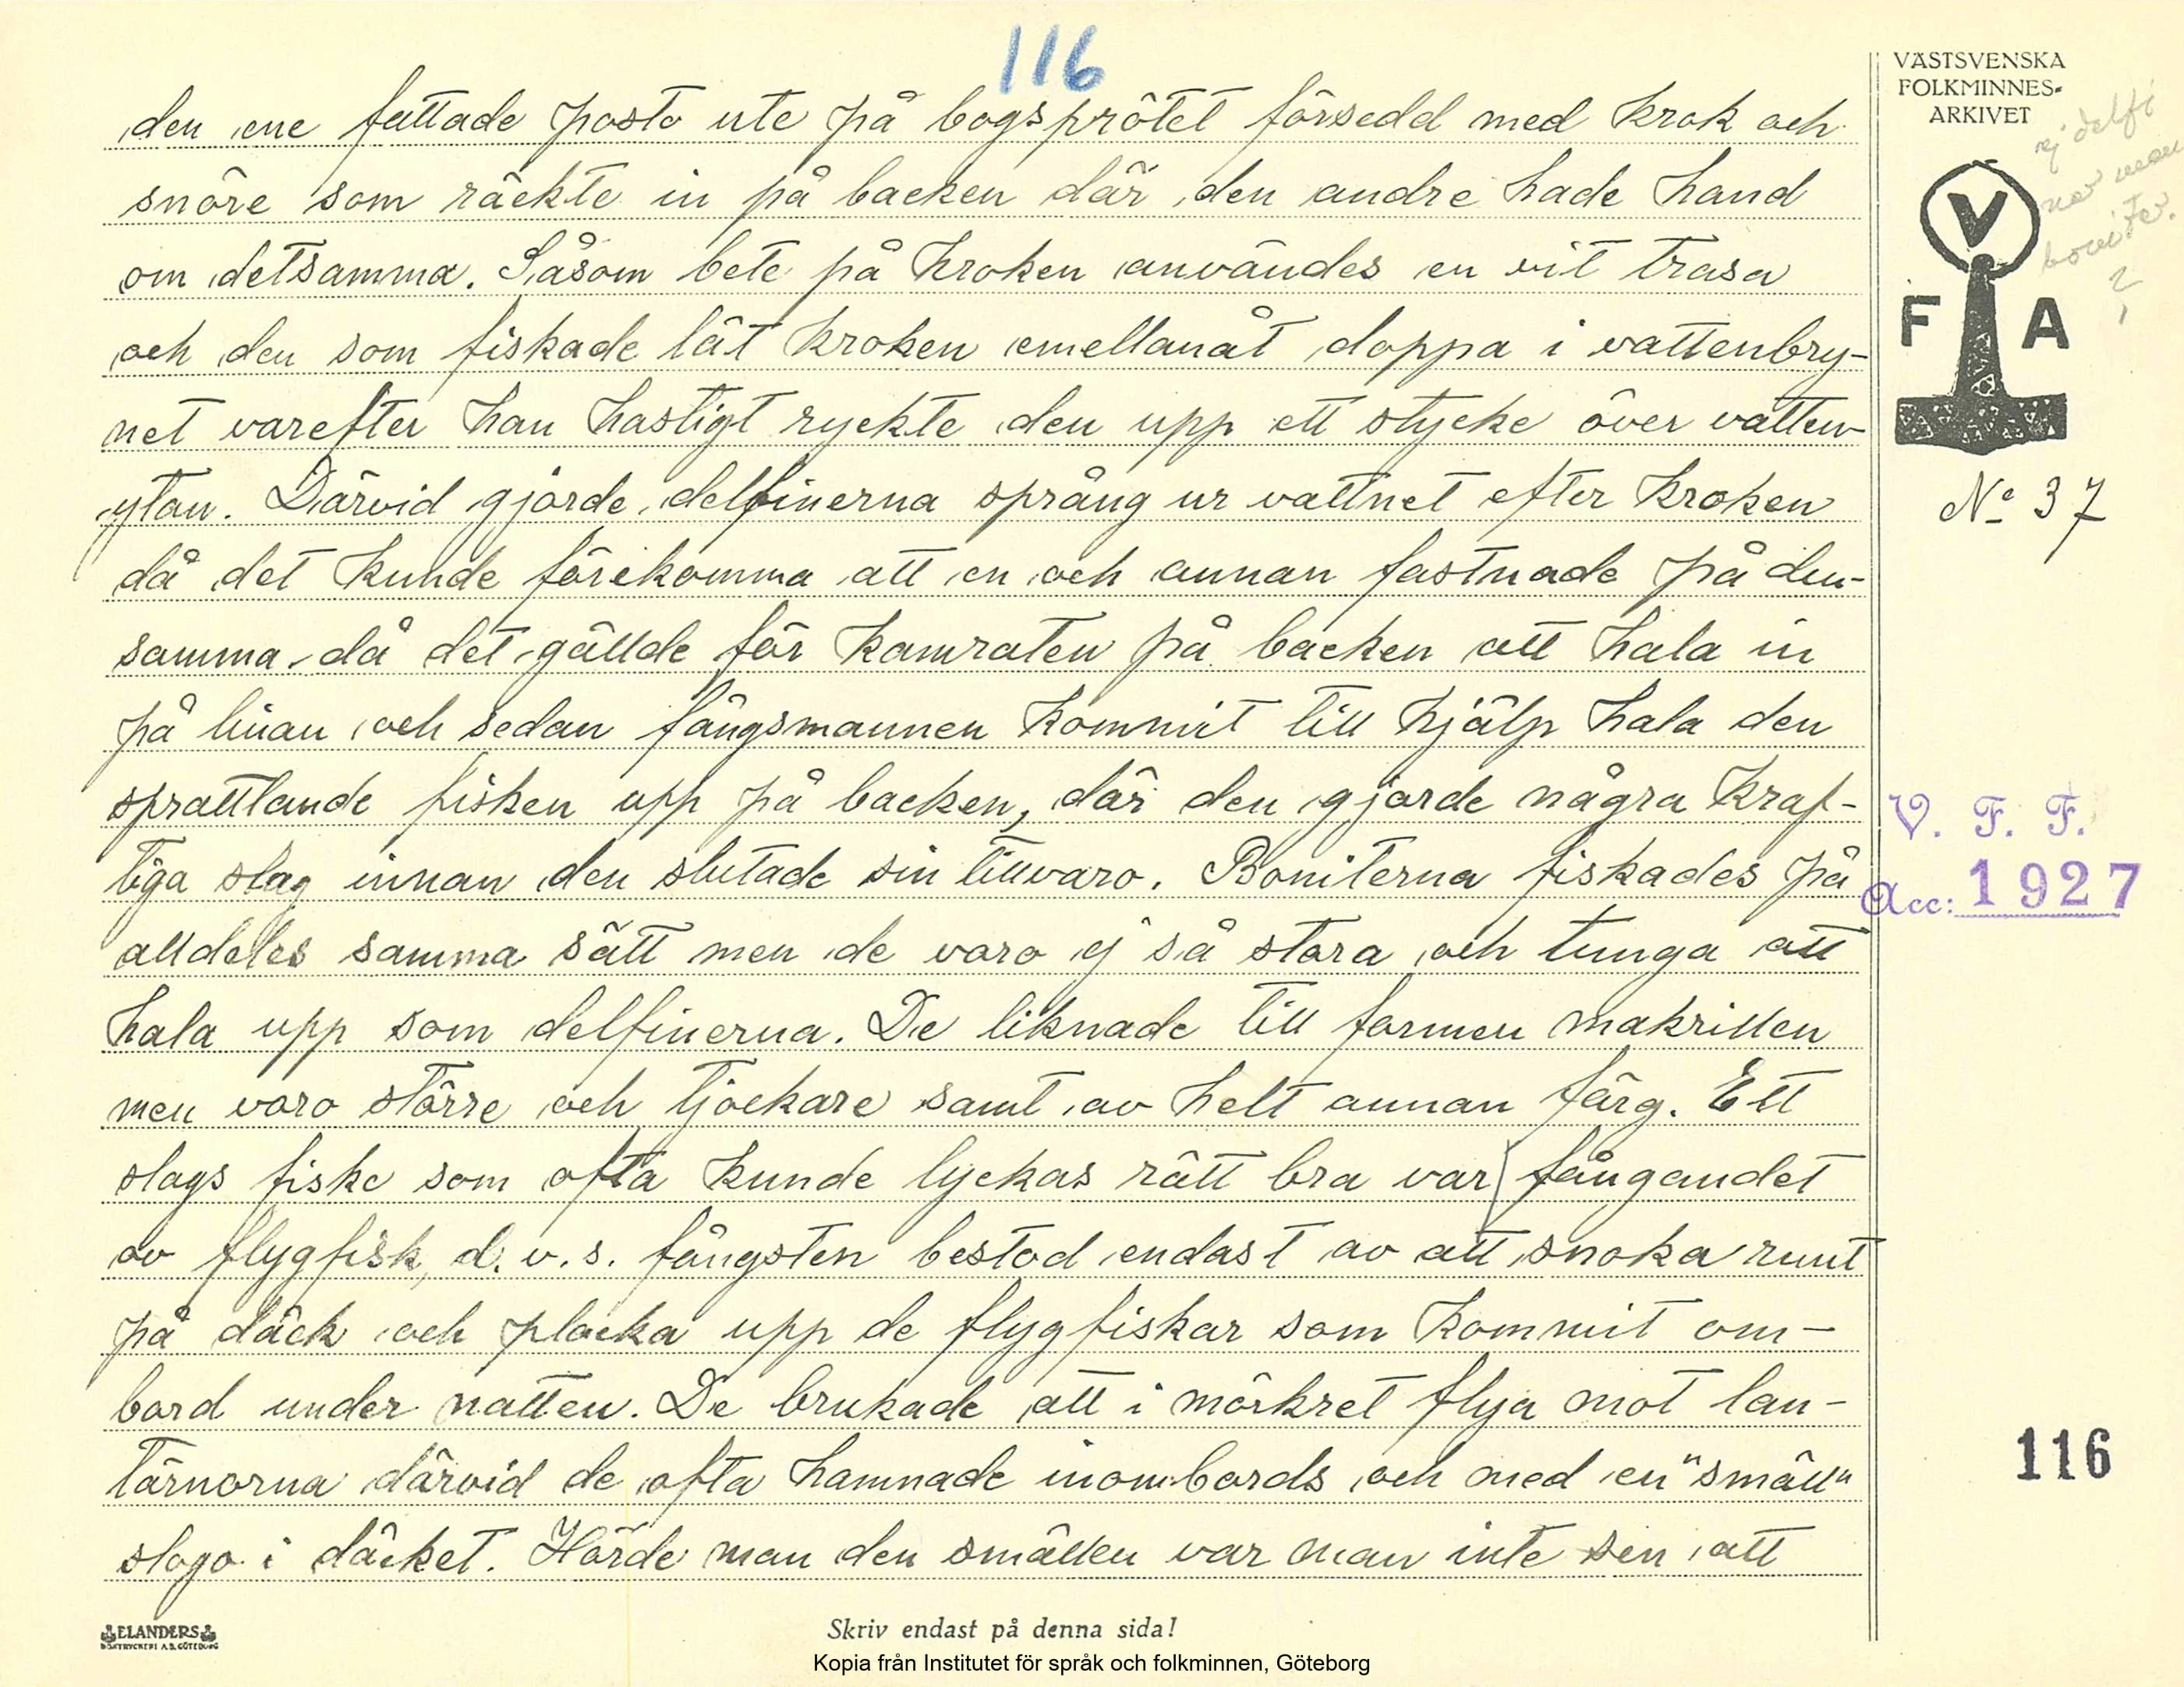 116
VÄSTSVENSKA
FOLKMINNES-
ARKIVET
ej delfi
ner utan
boniter
?
V
F A
No 37
den ene fattade posto ute på bogsprötet försedd med krok och
snöre som räckte in på backen där den andre hade hand
om detsamma. Såsom bete på kroken användes en vit trasa
och den som fiskade lät kroken emellanåt doppa i vattenbry-
net varefter han hastigt ryckte den upp ett stycke över vatten-
ytan. Därvid gjorde delfinerna språng ur vattnet efter kroken
då det kunde förekomma att en och annan fastnade på den-
samma då det gällde för kamraten på backen att hala in
på linan och sedan fångsmannen kommit till hjälp hala den
sprattlande fisken upp på backen, där den gjorde några kraf-
tiga slag innan den slutade sin tillvaro. Boniterna fiskades på
alldeles samma sätt men de voro ej så stora och tunga att
hala upp som delfinerna. De liknade till formen makrillen
men voro större och tjockare samt av helt annan färg. Ett
slags fiske som ofta kunde lyckas rätt bra var fångandet
av flygfisk, d. v. s. fångsten bestod endast av att snoka runt
på däck och plocka upp de flygfiskar som kommit om-
bord under natten. De brukade att i mörkret flyga mot lan-
tärnorna därvid de ofta hamnade inombords och med en "smäll"
slogo i däcket. Hörde man den smällen var man inte sen att
V. F. F.
Acc: 1927
116
ELANDERS
BOKTRYCKERI A.B. GÖTEBORG
Skriv endast på denna sida!
Kopia från Institutet för språk och folkminnen, Göteborg